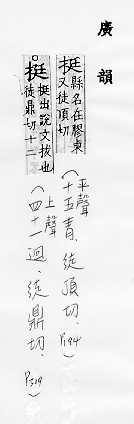 廣韻
挺縣名在膠東
又徒頂切
平聲
(十五青、徒頂切. P.194)
挺挺出說文拔也
徒鼎切十二
上聲
(四十一迥、徒鼎切. P.319)